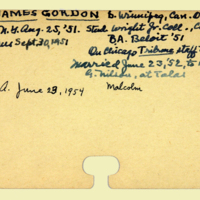 JAMES GORDON b. Winnipeg, Can. D
N.Y. Aug. 25, '51. Stud Wright Jr. Coll., C
Sept. 30, 1951 BA. Beloit '51
On Chicago Tribune staff
Married June 23, '52, to
G. at Talas
A. June 23, 1954 Malcolm